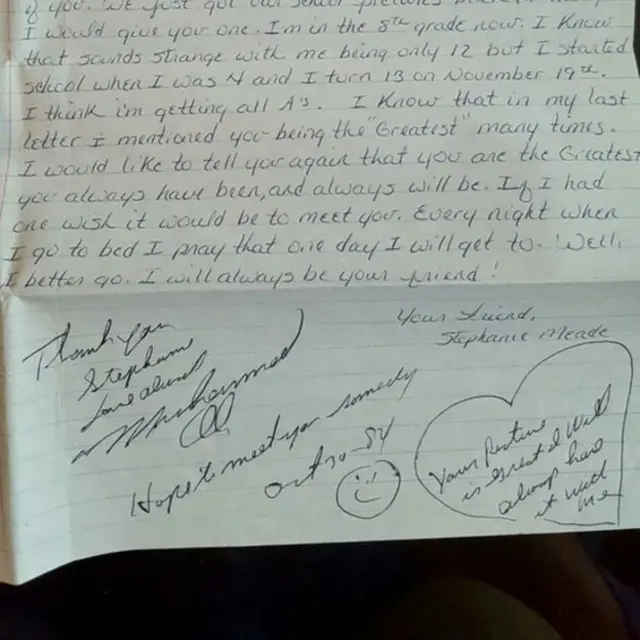 of you. We just got our school pictures
I would give you one. I'm in the 8th grade now. I Know
that sounds strange with me being only 12 but I started
school when I was 4 and I turn 13 on November 19th.
I think i'm getting all A's. I Know that in my last
letter i mentioned you being the "Greatest" many times.
I would like to tell you again that you are the Greatest
you always have been, and always will be. If I had
one wish it would be to meet you. Every night when
I go to bed I pray that one day I will get to. Well,
I better go. I will always be your friend!
Your Friend,
Stephanie Meade
Thank you
Stephanie
Love always
Muhammad
Ali
Hope to meet you someday
Oct 30-84
Your Picture
is great I will
always have
it with
me